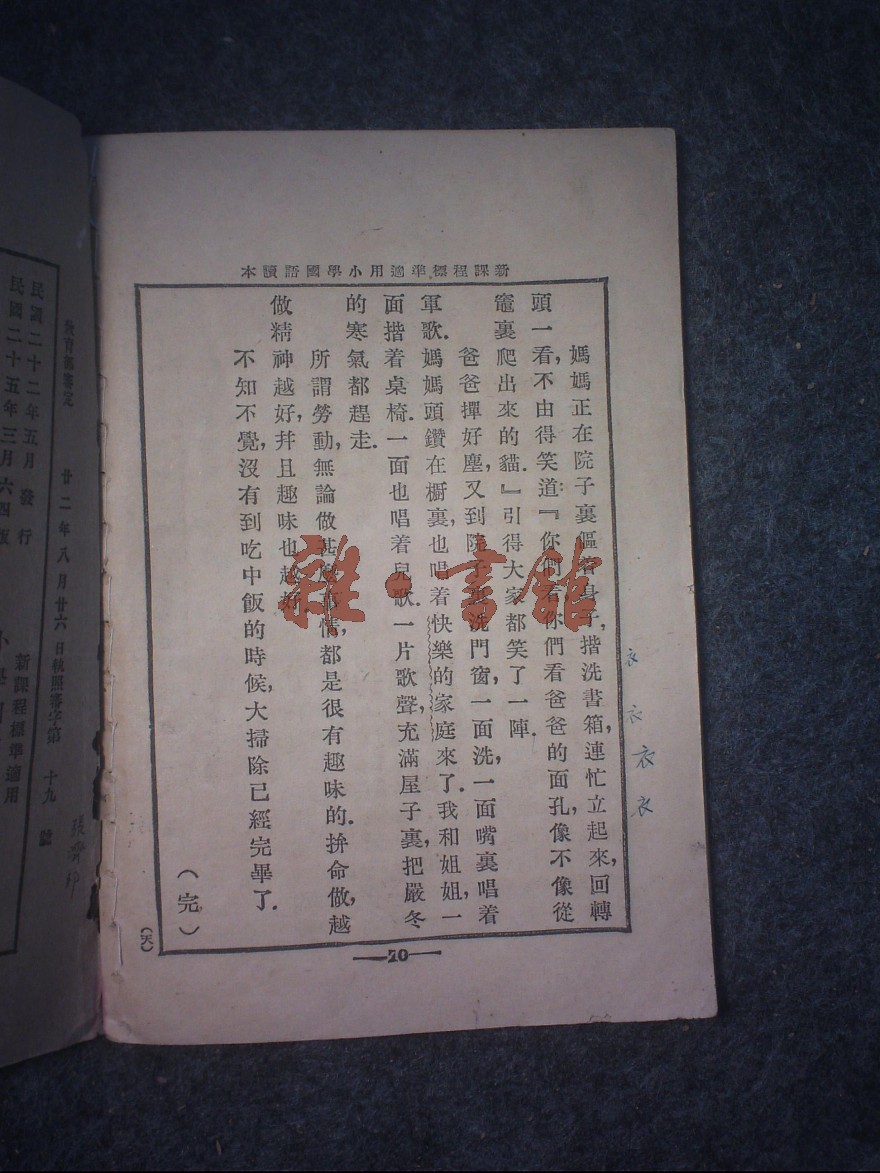 新課程標準適用小學國語讀本
媽媽正在院子裏傴着身子,揩洗書箱,連忙立起來,回轉
頭一看,不由得笑道:『你們看,你們看爸爸的面孔,像不像從
竈裏爬出來的貓.』引得大家都笑了一陣.
爸爸撣好塵,又到院子洗門窗,一面洗,一面嘴裏唱着
軍歌.媽媽頭鑽在櫥裏,也唱着快樂的家庭來了.我和姐姐,一
面揩着桌椅.一面也唱着兒歌.一片歌聲,充滿屋子裏,把嚴冬
的寒氣都趕走.
所謂勞動,無論做甚麼事情,都是很有趣味的.拚命做,越
做精神越好,幷且趣味也越好
不知不覺,沒有到吃中飯的時候,大掃除已經完畢了.
(完)
70
(天)
衣
衣
衣
衣
雜·書館
教育部審定 廿二年八月廿六日執照審字第 十九 號
民國二十二年五月發行
民國二十五年三月六四版
新課程標準適用
小學國